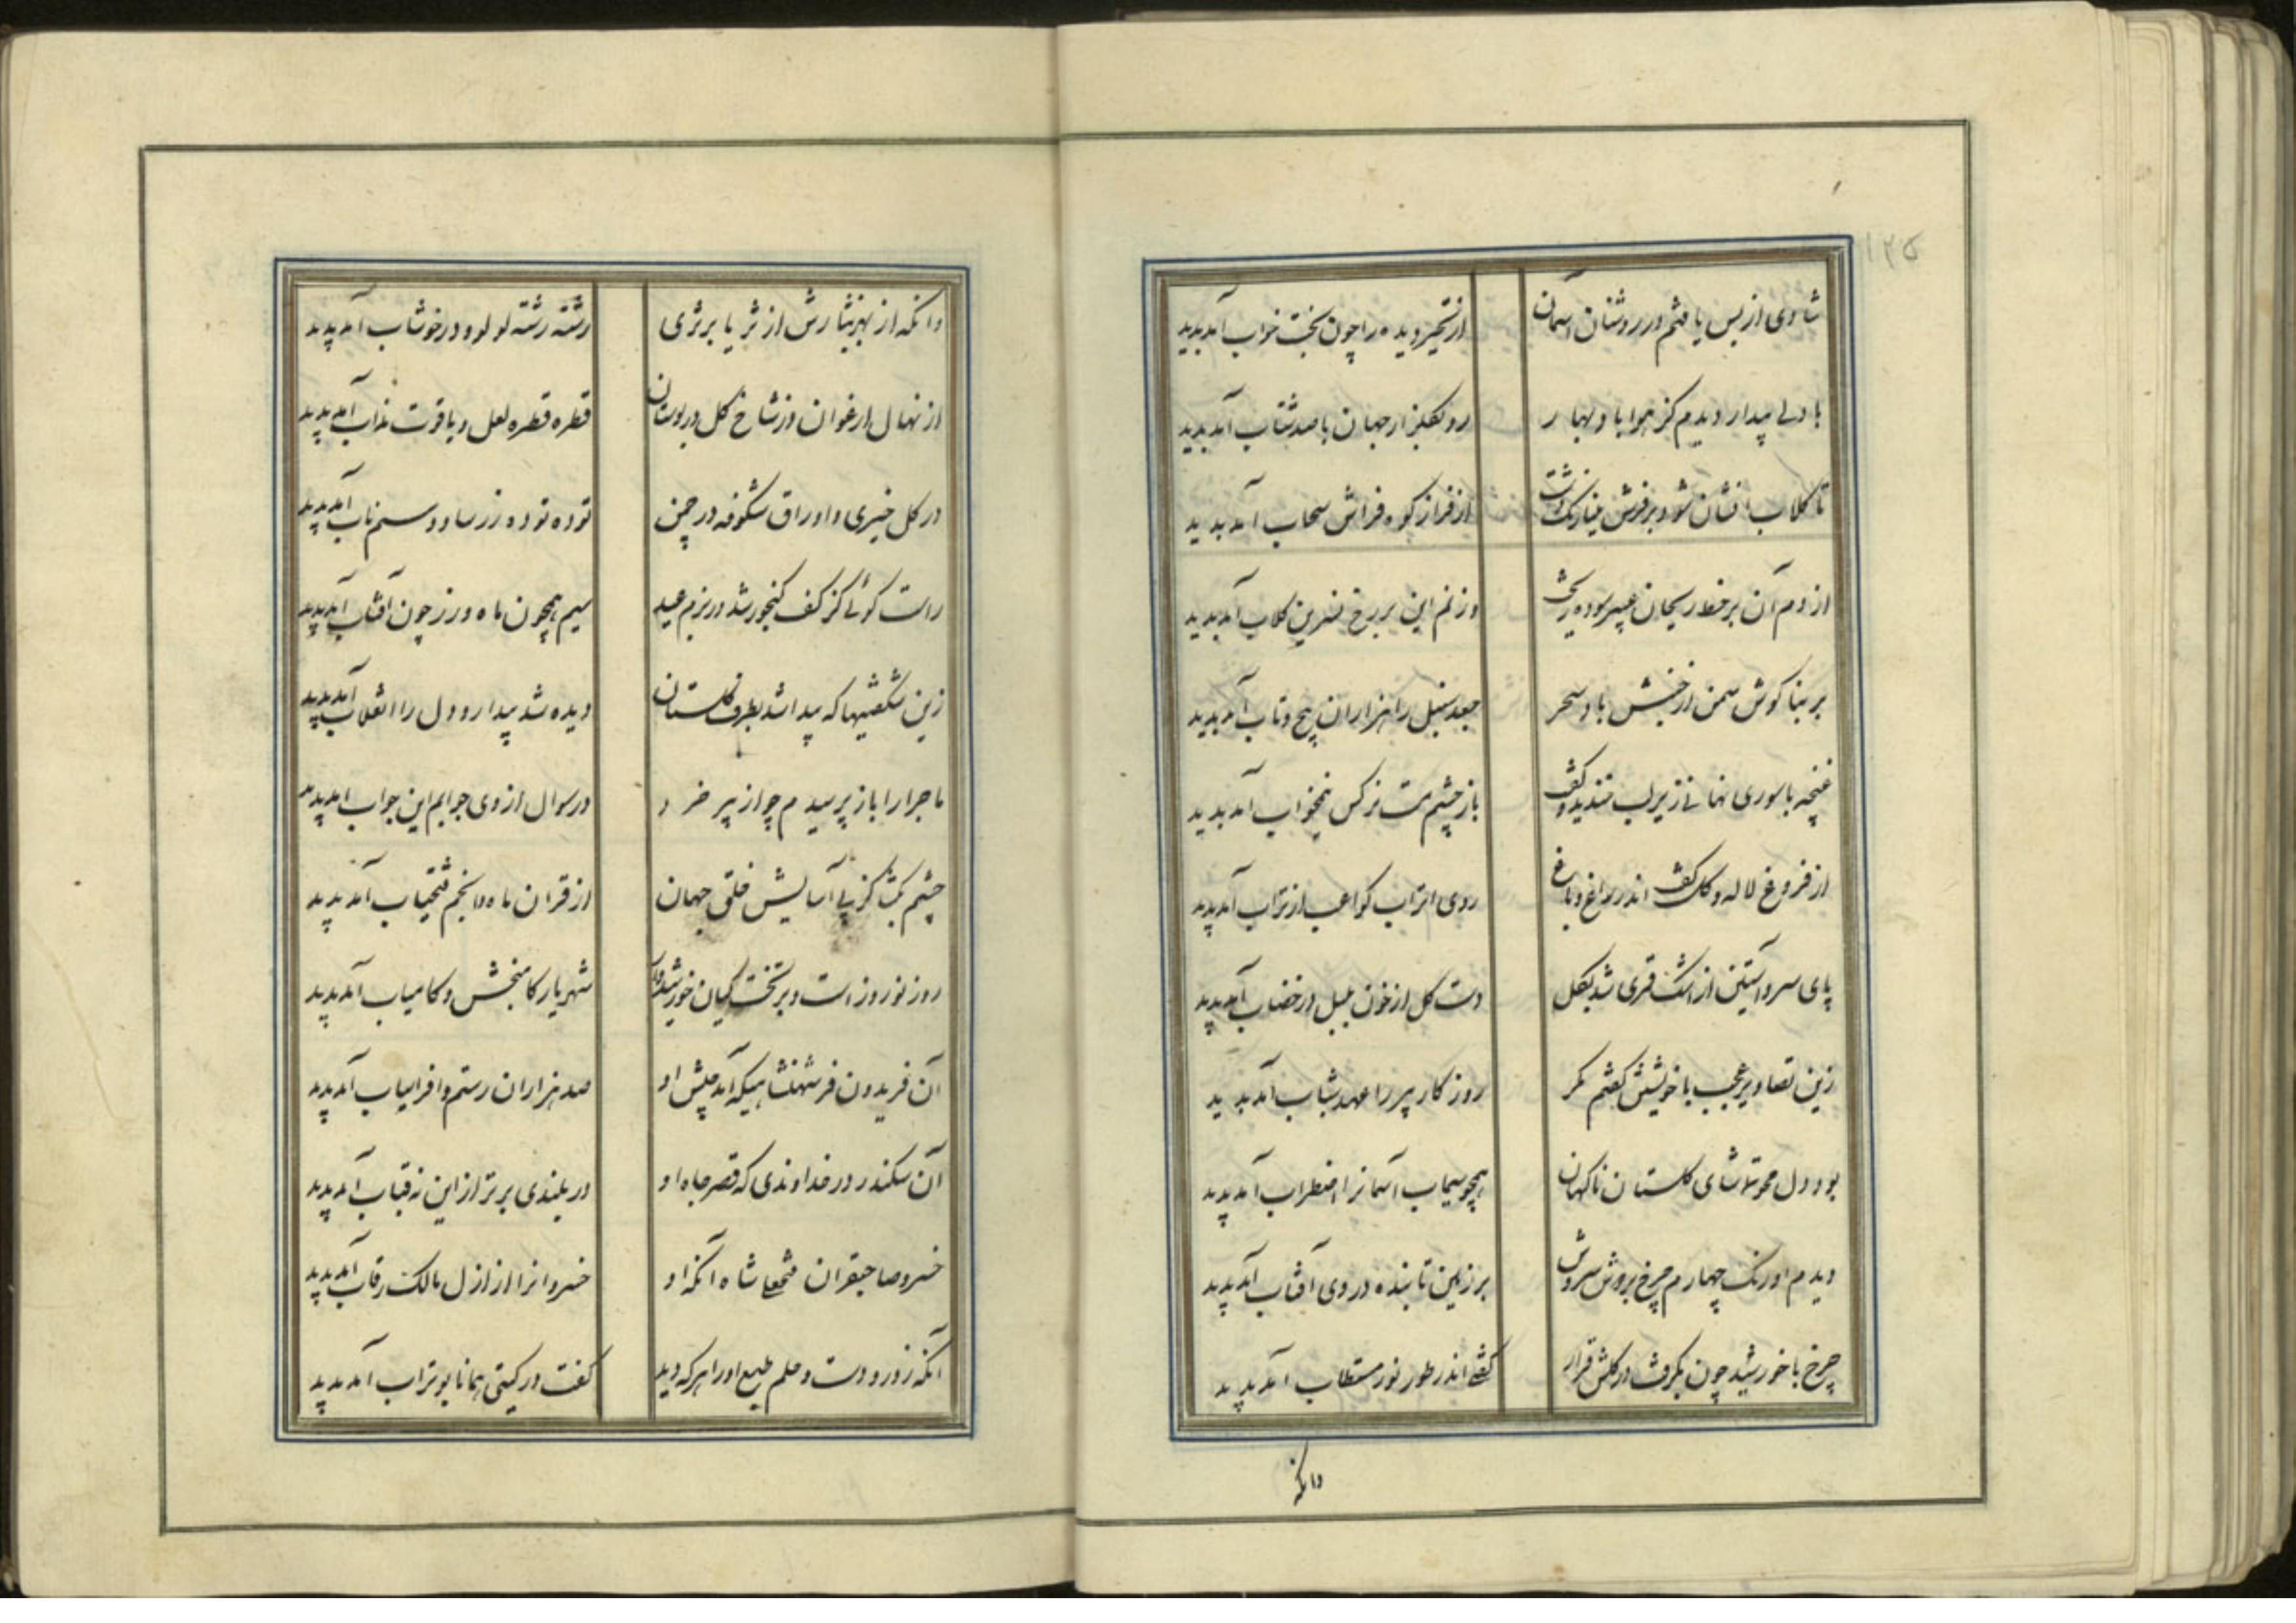 ۱۲۵
شادی از بس یافتم در روشنان آسمان از تحیر دیده را چون بخت خواب آمد پدید
با دلی بیدار دیدم کز هوا باد بهار رو بگلزار جهان با صد شتاب آمد پدید
تا گلاب افشان شود بر فرش مینا رنگ دشت از فراز کوه فراش سحاب آمد پدید
از دم آن بر خط ریحان عبیر سوده ریخت وز نم این بر رخ نسرین گلاب آمد پدید
بر بناگوش سمن از جنبش باد سحر جعد سنبل را هزاران پیچ و تاب آمد پدید
غنچه با سوری نهانی زیر لب خندید و گفت باز چشم مست نرگس نیمخواب آمد پدید
از فروغ لاله و گل گفت اندر راغ و باغ روی اتراب کواعب از تراب آمد پدید
پای سرو آستین از اشک قمری شد بگل دست گل از خون بلبل در خضاب آمد پدید
زین تصاویر عجب با خویشتن گفتم مگر روزگار پیر را عهد شباب آمد پدید
بود دل محو تماشای گلستان ناگهان همچو سیماب آسمانرا اضطراب آمد پدید
دیدم اورنگ چهارم چرخ بر دوش سروش بر زمین تابنده در وی آفتاب آمد پدید
چرخ با خورشید چون بگرفت در گلشن قرار گفتی اندر طور نور مستطاب آمد پدید
وانکه
وانکه از بهر نثارش از ثریا بر ثری رشته رشته لولو و در خوشاب آمد پدید
از نهال ارغوان وز شاخ گل در بوستان قطره قطره لعل و یاقوت مذاب آمد پدید
در گل خیری و اوراق شکوفه در چمن توده توده زر ساو و سیم ناب آمد پدید
راست گوئی کز کف گنجور شه در بزم عید سیم همچون ماه و زر چون آفتاب آمد پدید
زین شگفتیها که پیدا شد بطرف گلستان دیده شد بیدار و دل را انقلاب آمد پدید
ماجرا را باز پرسیدم چو از پیر خرد در سوال از وی جوابم این جواب آمد پدید
چشم بگشا کز پی آسایش خلق جهان از قران ماه و انجم فتحیاب آمد پدید
روز نوروز است و بر تخت کیان خورشیدوار شهریار کامبخش و کامیاب آمد پدید
آن فریدون فر شهنشاهیکه آمد پیش او صد هزاران رستم و افراسیاب آمد پدید
آن سکندر در خداوندی که قصر جاه او در بلندی برتر از این نه قباب آمد پدید
خسرو صاحبقران فتحعلی شاه آنکه او خسروانرا از ازل مالک رقاب آمد پدید
آنکه زور و دست و حلم طبع او را هر که دید گفت در گیتی همانا بوتراب آمد پدید